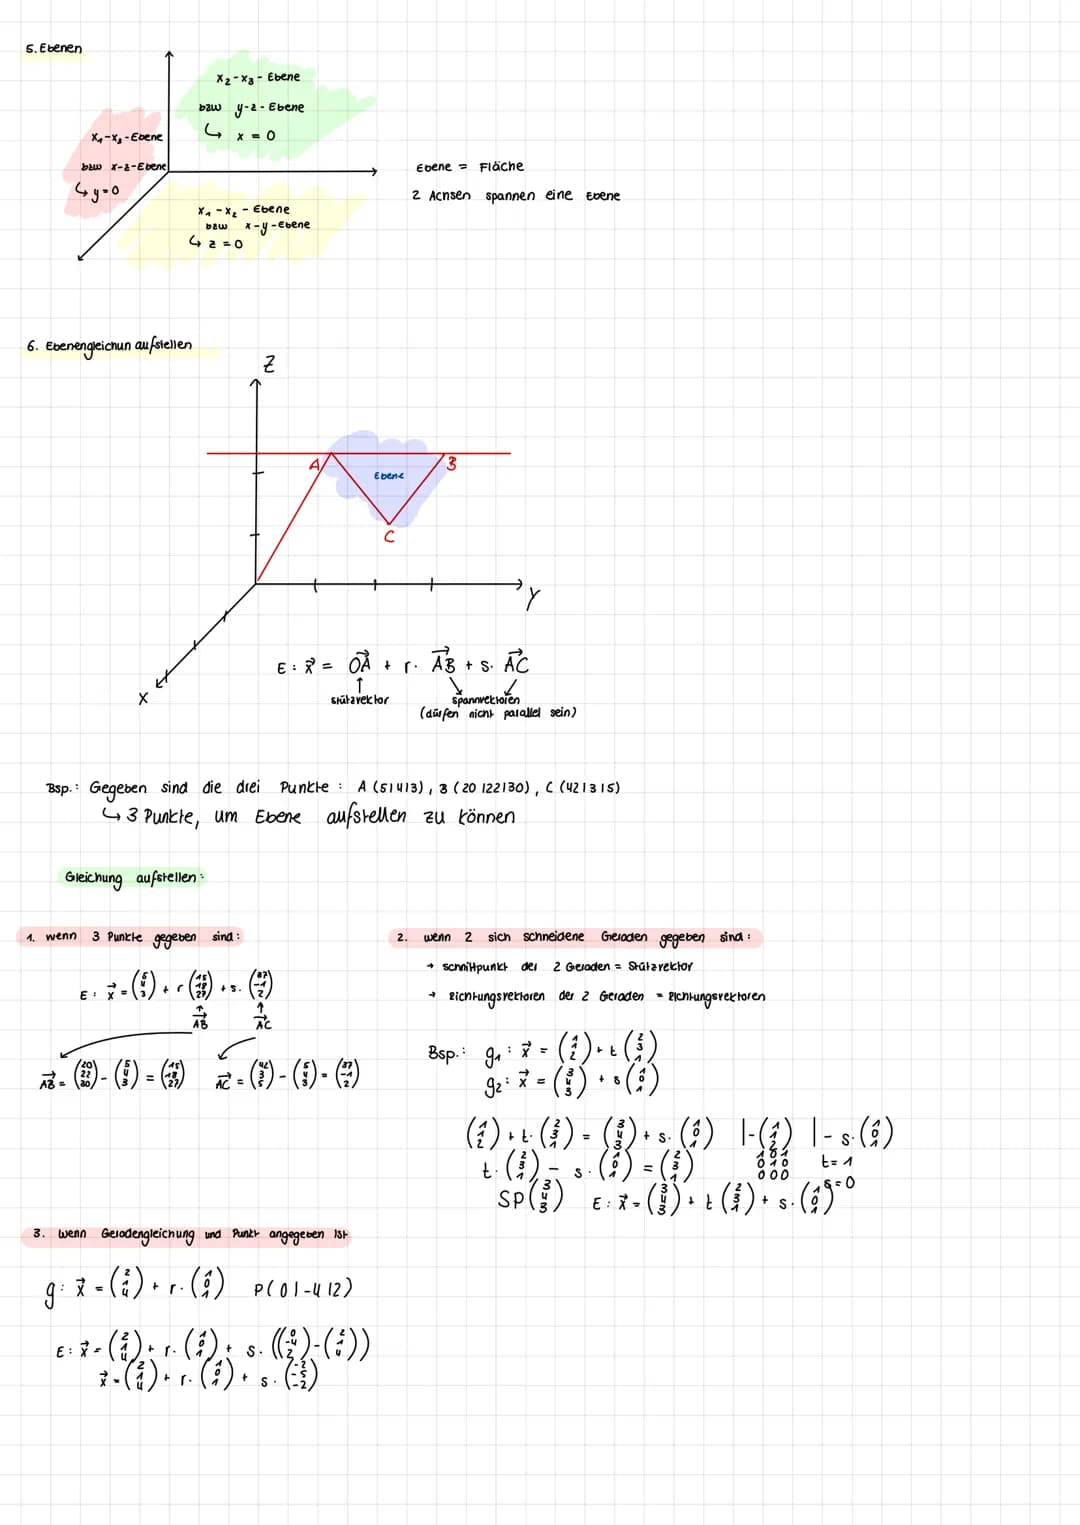 5. Ebenen
x₂-x₃ - Ebene
bzw y-z - Ebene
↳ x = 0
x₁-x₃-Ebene
bzw x-z-Ebene
↳ y=0
x₁-x₂ - Ebene
bzw x-y-Ebene
↳ z = 0
Ebene = Fläche
2 Achsen spannen eine Ebene
6. Ebenengleichun aufstellen
Z
A
B
Ebene
C
Y
X
E: x⃗ = OA⃗ + r. AB⃗ + s. AC⃗
↑
Stützvektor
spannvektoren
(dürfen nicht parallel sein)
Bsp.: Gegeben sind die drei Punkte : A (5|4|3), B (20|22|30), C (42|3|5)
↳ 3 Punkte, um Ebene aufstellen zu können
Gleichung aufstellen:
1. wenn 3 Punkte gegeben sind:
E: x⃗ = (5 4 3) + r (15 18 27) + s. (37 -1 2)
AB⃗ AC⃗
AB⃗ = (20 22 30) - (5 4 3) = (15 18 27) AC⃗ = (42 3 5) - (5 4 3) = (37 -1 2)
2. wenn 2 sich schneidene Geraden gegeben sind:
→ Schnittpunkt der 2 Geraden = Stützvektor
→ Richtungsvektoren der 2 Geraden = Richtungsvektoren
Bsp.: g₁: x⃗ = (1 1 2) + t (2 3 1)
g₂: x⃗ = (3 4 3) + s (1 0 1)
(1 1 2) + t. (2 3 1) = (3 4 3) + s. (1 0 1) |-(1 1 2) |- s. (1 0 1)
t. (2 3 1) - s. (1 0 1) = (2 3 1)
1 0 1
0 1 0
0 0 0
t = 1
s = 0
SP (3 4 3) E: x⃗ = (3 4 3) + t (2 3 1) + s. (1 0 1)
3. wenn Geradengleichung und Punkt angegeben ist
g: x⃗ = (2 1 4) + r. (1 0 1) P(0|-4|2)
E: x⃗ = (2 1 4) + r. (1 0 1) + s. ((0 -4 2) - (2 1 4))
x⃗ = (2 1 4) + r. (1 0 1) + s. (-2 -5 -2)